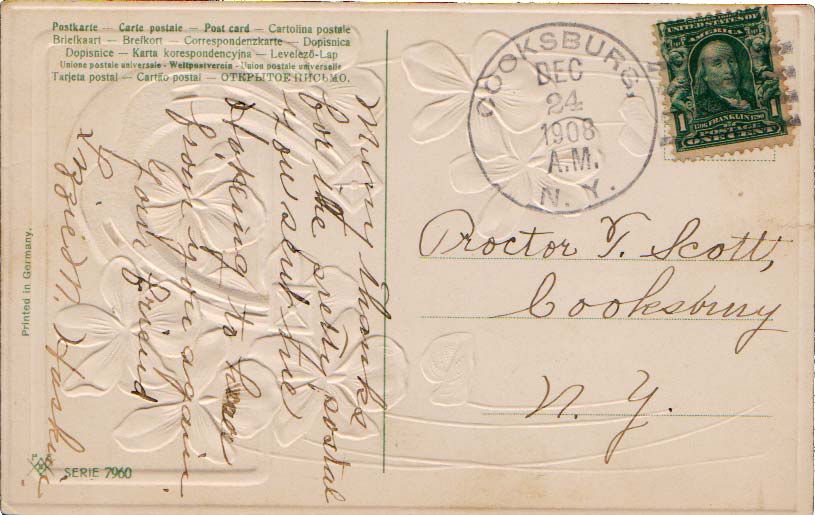 Postkarte — Carte postale — Post card — Cartolina postale
Briefkaart — Brefkort — Correspondenzkarte — Dopisnica
Dopisnice — Karta korespondencyjna — Levelező-Lap
Unione postale universale - Weltpostverein - Union postale universelle
Tarjeta postal — Cartão postal — ОТКРЫТОЕ ПИСЬМО.
COOKSBURG,
DEC
24
1908
A.M.
N. Y.
UNITED STATES OF
AMERICA
1706 FRANKLIN 1790
1 1
POSTAGE
ONE CENT
Many thanks
for the pretty postal
you sent me
Hoping to hear
from you again
Your friend
Lizzie N.
Proctor T. Scott,
Cooksburg
N. Y.
Printed in Germany.
SERIE 7960